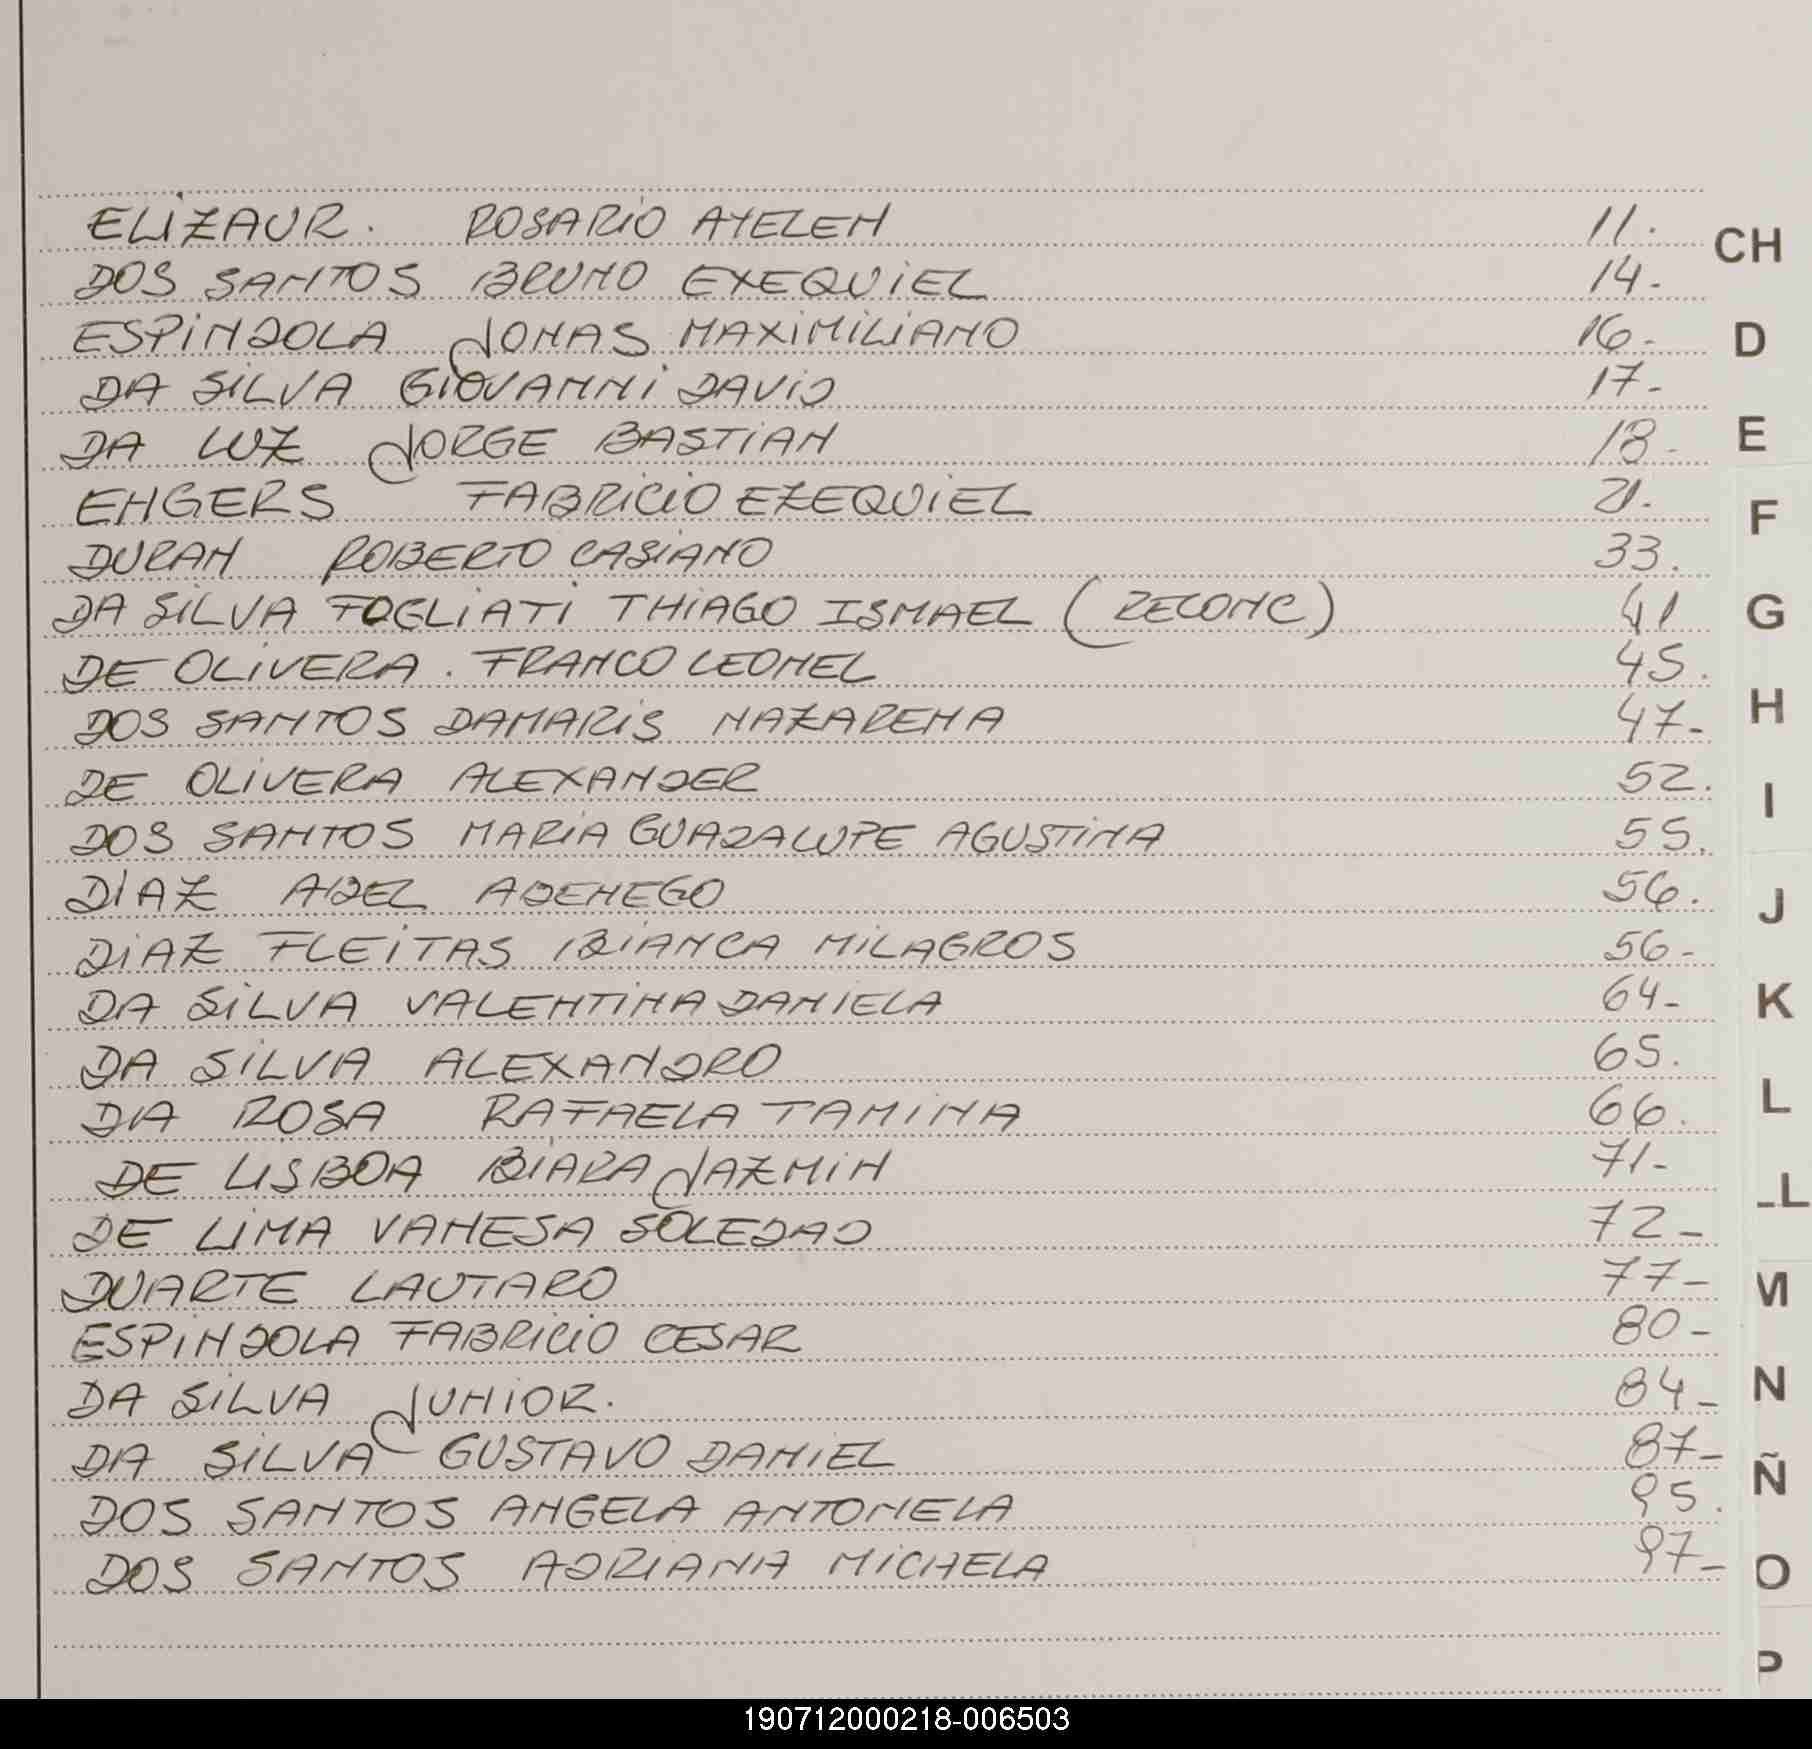 ELIZAUR. ROSARIO AYELEN 11.
DOS SANTOS BRUNO EXEQUIEL 14-
ESPINDOLA JONAS MAXIMILIANO 16-
DA SILVA GIOVANNI DAVID 17-
DA LUZ JORGE BASTIAN 18-
EHGERS FABRICIO EZEQUIEL 21.
DURAN ROBERTO CASIANO 33.
DA SILVA FOGLIATI THIAGO ISMAEL (RECONC) 41
DE OLIVERA. FRANCO LEONEL 45.
DOS SANTOS DAMARIS NAZARENA 47-
DE OLIVERA ALEXANDER 52.
DOS SANTOS MARIA GUADALUPE AGUSTINA 55.
DIAZ ABEL ADENEGO 56.
DIAZ FLEITAS BIANCA MILAGROS 56-
DA SILVA VALENTINA DANIELA 64-
DA SILVA ALEXANDRO 65.
DA ROSA RAFAELA TAMINA 66.
DE LISBOA BIARA JAZMIN 71-
DE LIMA VANESA SOLEDAD 72-
DUARTE LAUTARO 77-
ESPINDOLA FABRICIO CESAR 80-
DA SILVA JUNIOR. 84-
DA SILVA GUSTAVO DANIEL 87-
DOS SANTOS ANGELA ANTONELA 95.
DOS SANTOS ADRIANA MICHELA 97-
CH
D
E
F
G
H
I
J
K
L
LL
M
N
Ñ
O
P
190712000218-006503